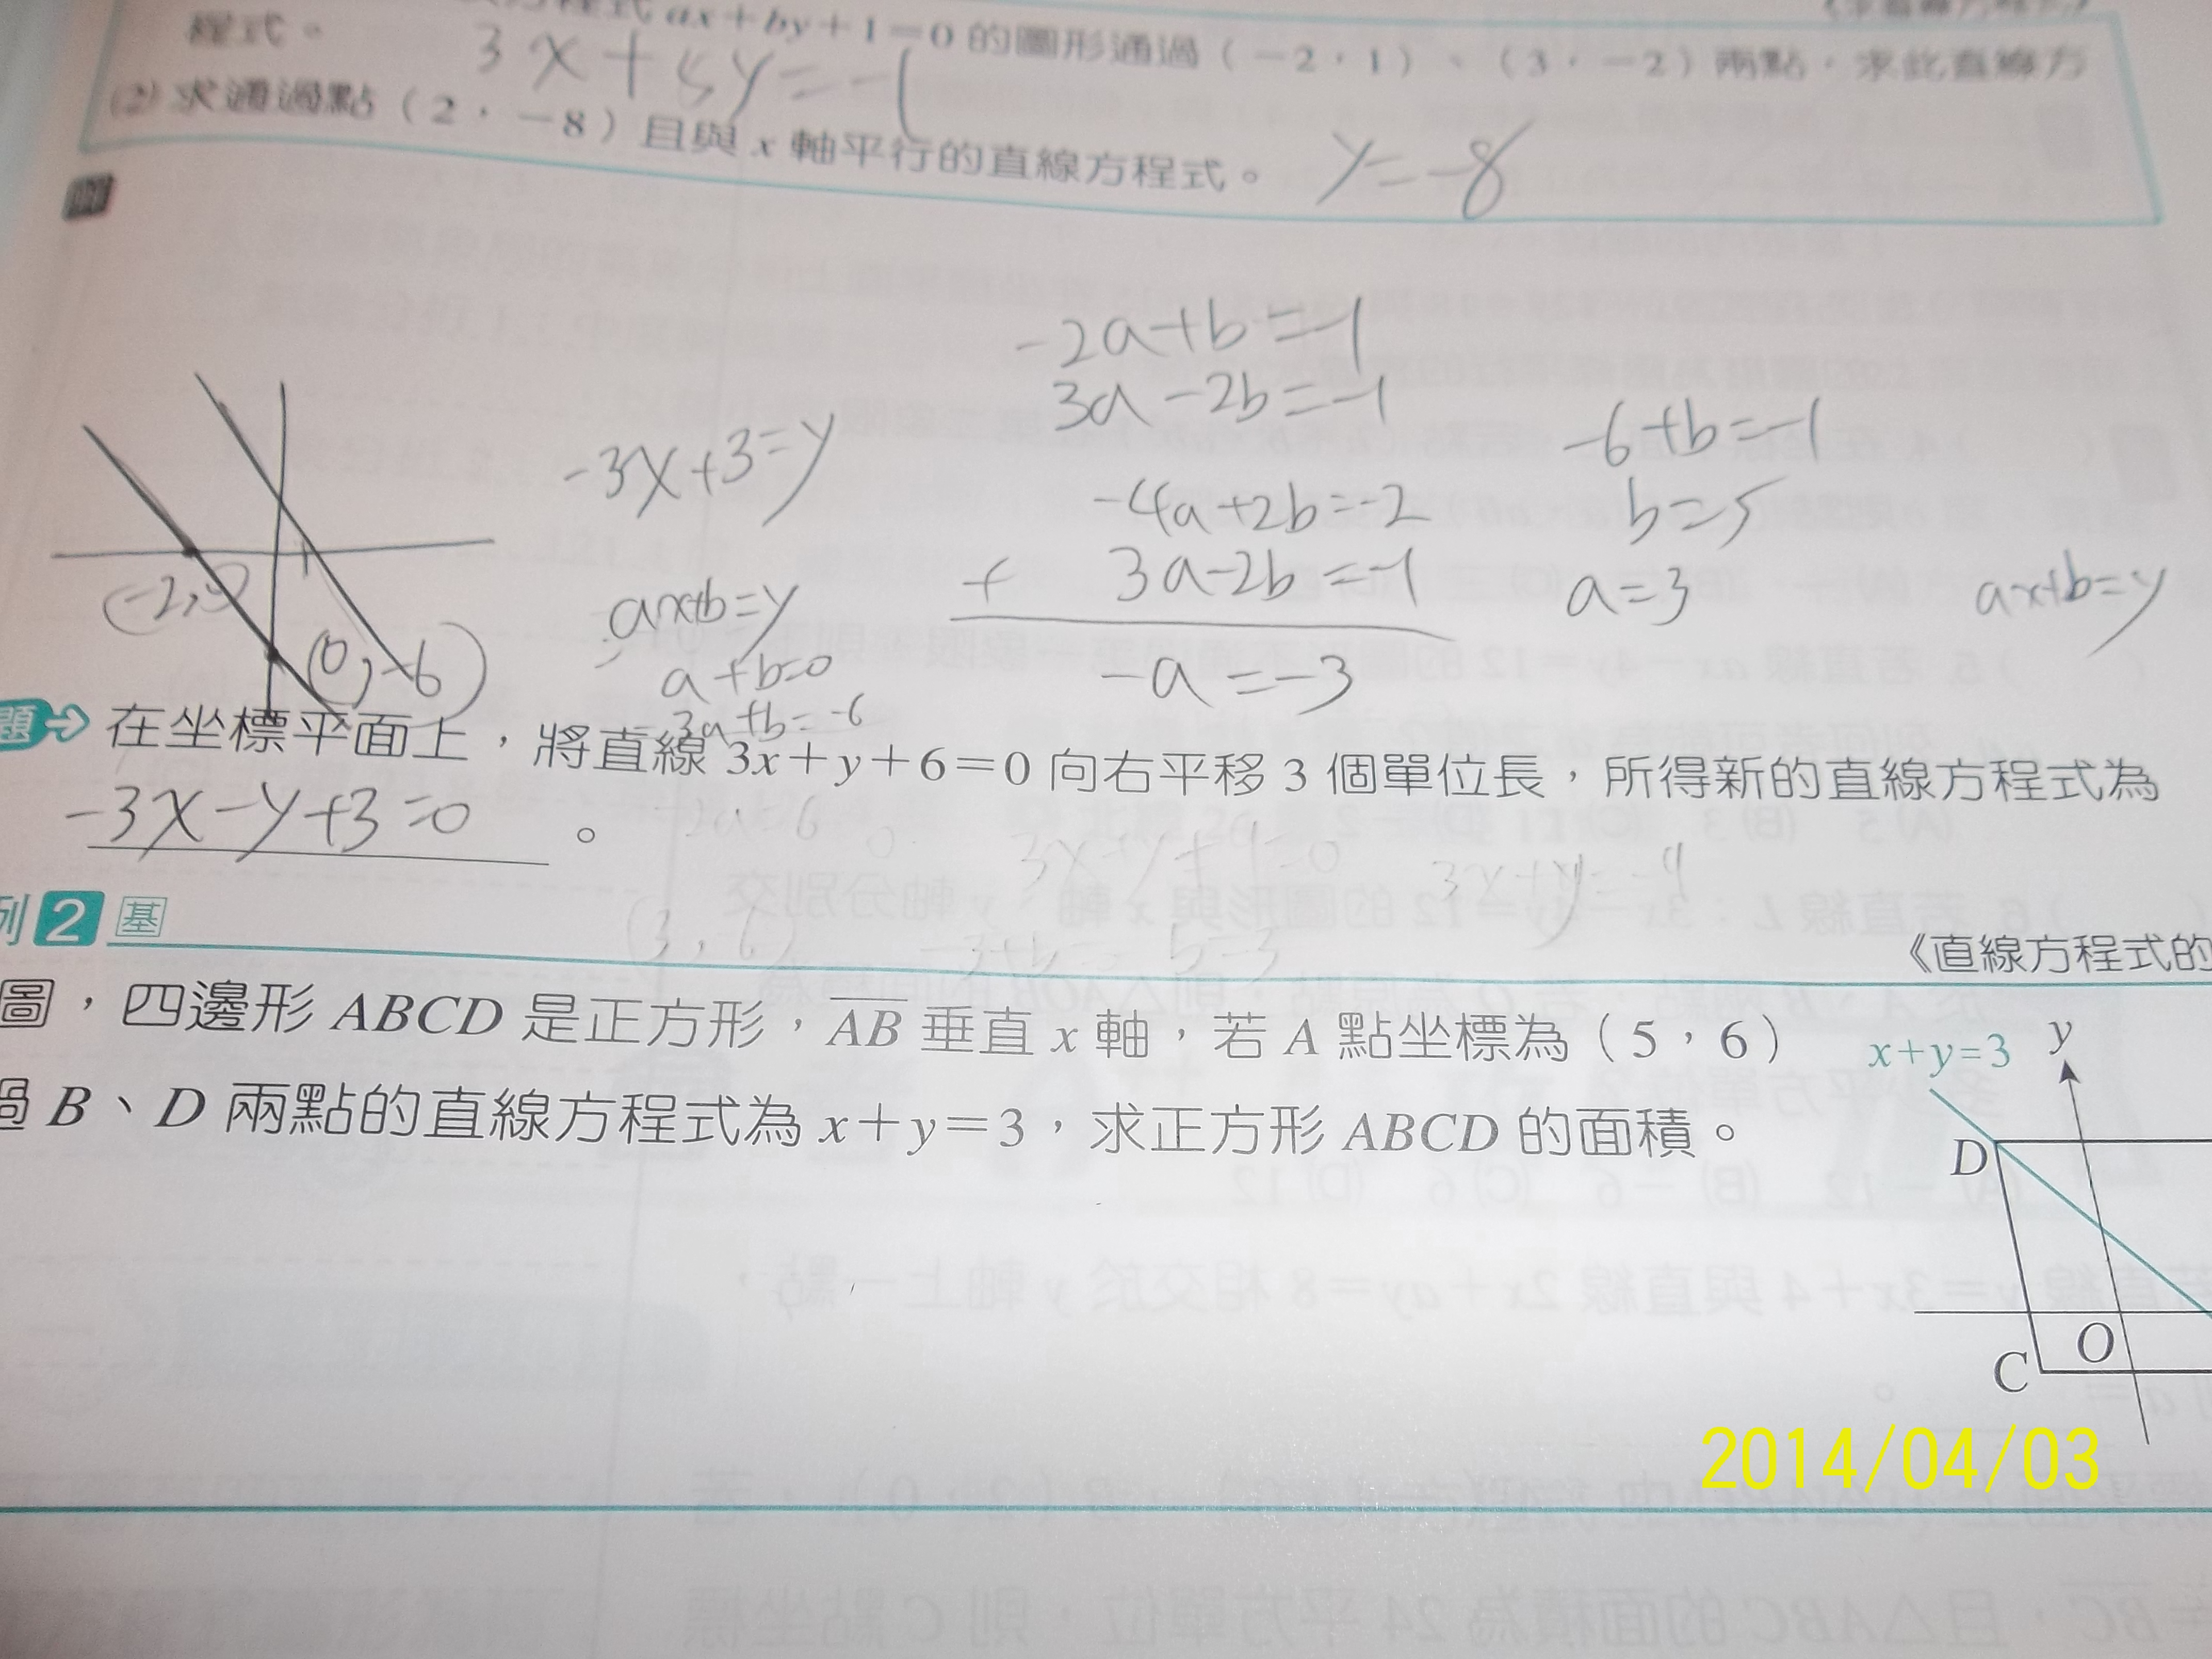 ax+by+1=0 的圖形通過（-2，1）、（3，-2）兩點，求此直線方
程式。
3x+5y=-1
(2) 求通過點（2，-8）且與 x 軸平行的直線方程式。
y=-8
-2a+b=-1
3a-2b=-1
-3x+3=y
-6+b=-1
-4a+2b=-2
b=5
+ 3a-2b=-1
a=3
ax+b=y
ax+b=y
(-2,0)
(0,-6)
a+b=0
-a=-3
3a+b=-6
題 在坐標平面上，將直線 3x+y+6=0 向右平移 3 個單位長，所得新的直線方程式為
-3x-y+3=0 。
-2a=6
(3,6)
例 2 基
《直線方程式的
圖，四邊形 ABCD 是正方形，AB 垂直 x 軸，若 A 點坐標為（5，6）
過 B、D 兩點的直線方程式為 x+y=3，求正方形 ABCD 的面積。
x+y=3
y
D
O
C
2014/04/03